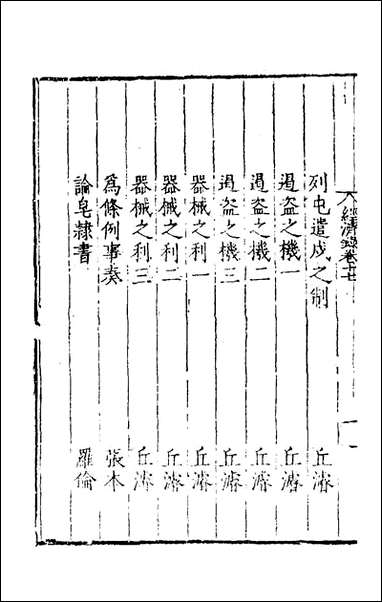 列屯遣戍之制 丘濬
遏盗之機一 丘濬
遏盗之機二 丘濬
遏盗之機三 丘濬
器械之利一 丘濬
器械之利二 丘濬
器械之利三 丘濬
為條例事奏 張本
論皂隸書 羅倫